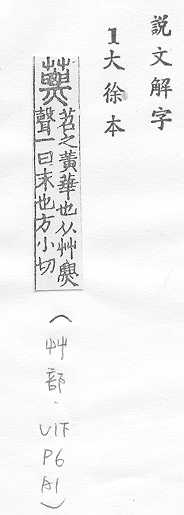 説文解字
1大徐本
蔈
苕之黃華也从艸𤐫
聲一曰末也方小切
(艸部.V1下P6A1)